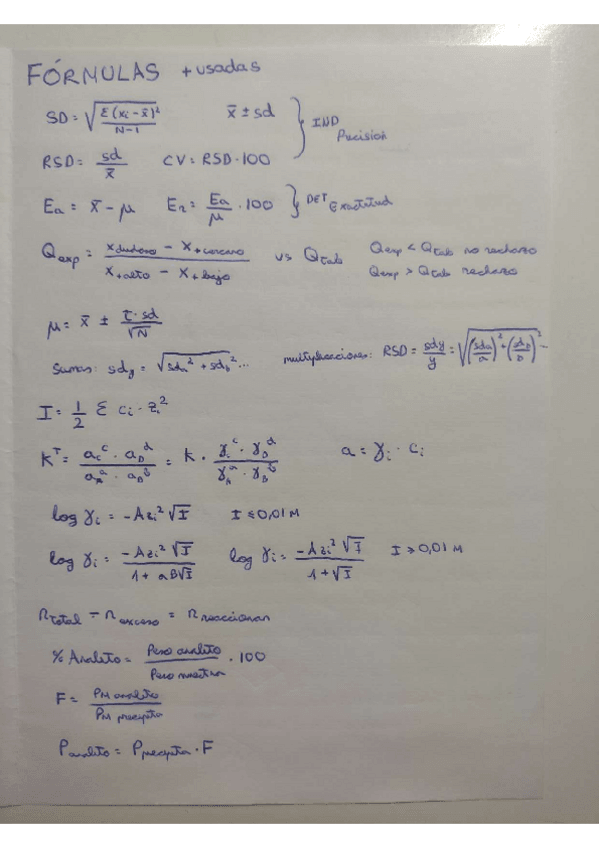 FÓRMULAS + usadas
SD = √(Σ(xi - x̄)²/N-1) x̄ ± sd } IND Precision
RSD = sd/x̄ CV = RSD·100
Ea = x̄ - μ Er = Ea/μ · 100 } DET Exactitud
Qexp = (Xdudoso - X+cercano)/(X+alto - X+bajo) vs Qtab Qexp < Qtab no rechazo
Qexp > Qtab rechazo
μ = x̄ ± t·sd/√N
Sumas: sdy = √(sda² + sdb² ...) multiplicaciones: RSD = sdy/y = √((sda/a)² + (sdb/b)² ...)
I = 1/2 Σ ci · zi²
KT = (aCc · aDd)/(aAa · aBb) = K · (γCc · γDd)/(γAa · γBb) a = γi · ci
log γi = -Azi² √I I ≤ 0,01 M
log γi = -Azi² √I/(1 + aB√I) log γi = -Azi² √I/(1 + √I) I > 0,01 M
ntotal - nexceso = nreaccionan
% Analito = Peso analito/Peso muestra · 100
F = PM analito/PM precipita
Panalito = Pprecipita · F